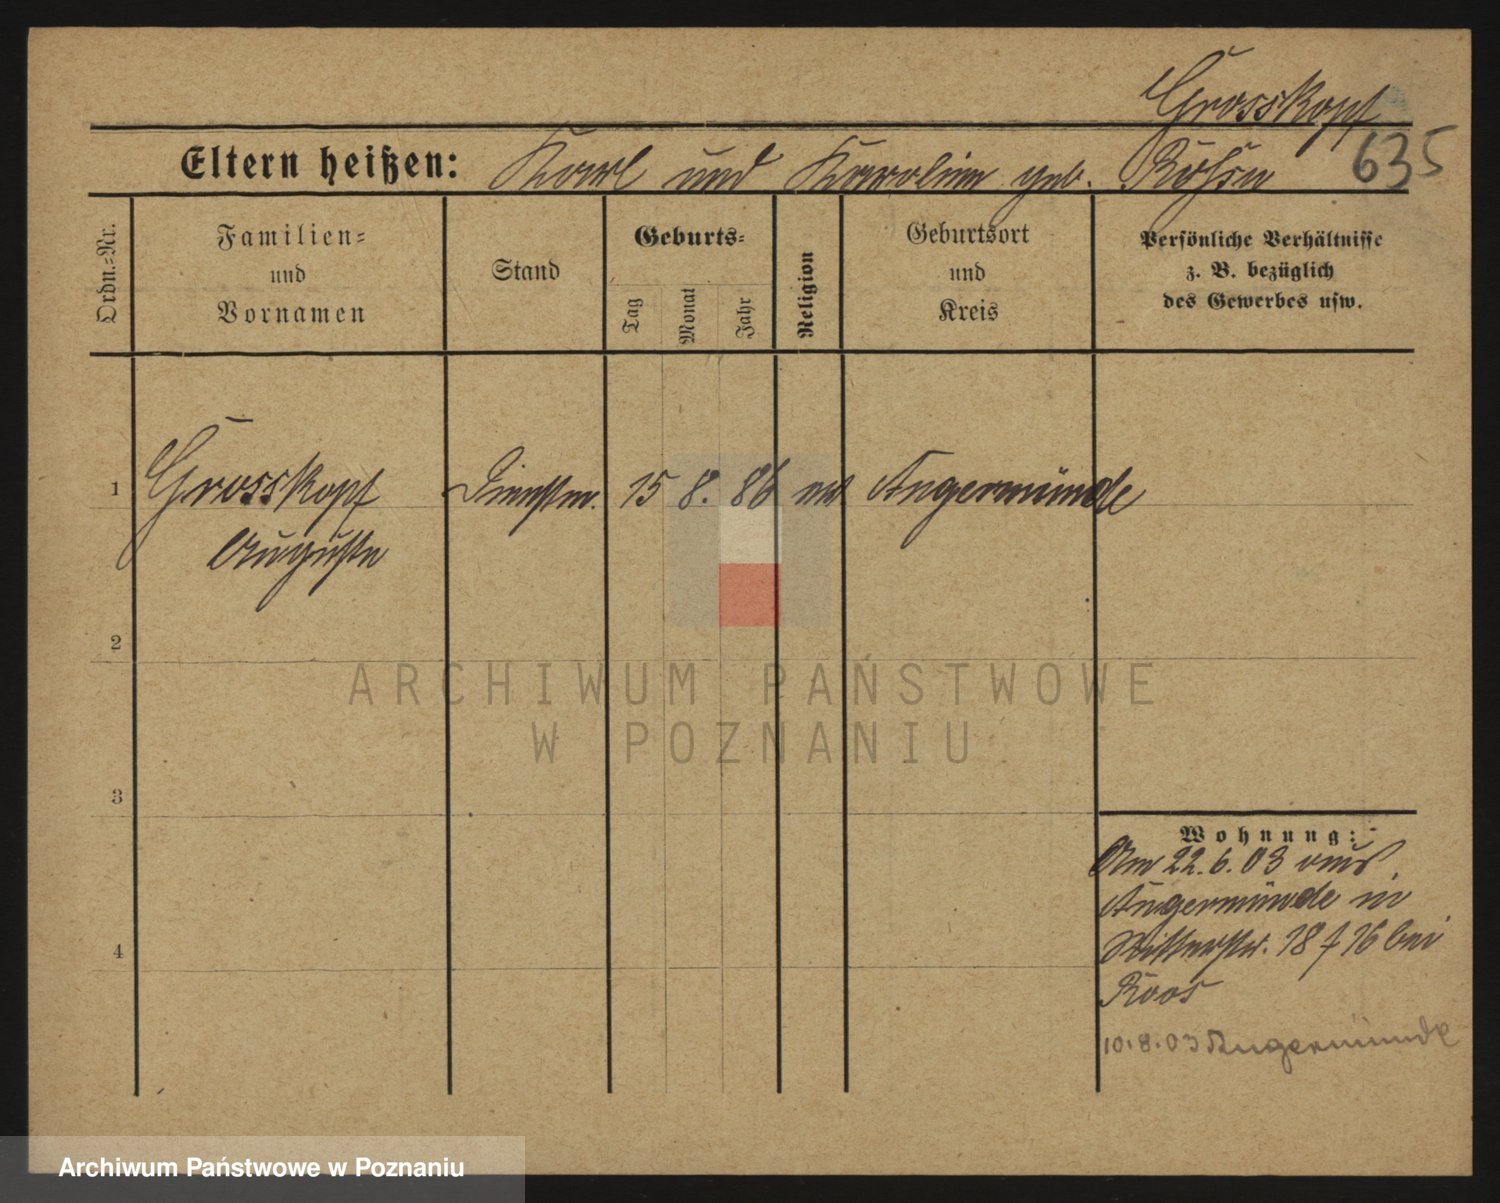 Grosskopf
635
Eltern heißen: Karl und Karoline geb.
Ordn.-Nr.
Familien-
und
Vornamen
Stand
Geburts-
Tag
Monat
Jahr
Religion
Geburtsort
und
Kreis
Persönliche Verhältnisse
z. B. bezüglich
des Gewerbes usw.
1 Grosskopf Dienstm. 15 8. 86 ev Angermünde
Auguste
2
3
4
ARCHIWUM PAŃSTWOWE
W POZNANIU
Wohnung:
Am 22.6.03 aus
Angermünde in
Ritterstr. 18 f 16 bei
Roos
10.8.03 Angermünde
Archiwum Państwowe w Poznaniu